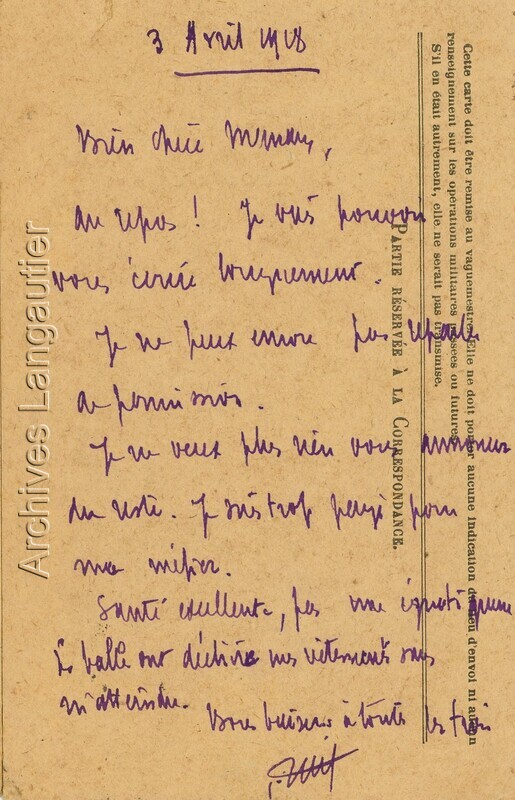 3 Avril 1918
Bien chère Maman,
au repos ! Je vais pouvoir
vous écrire longuement.
Je ne peux encore pas
de permission.
Je ne veux plus rien vous annoncer
du reste. Je suis trop payé pour
me méfier.
Santé excellente, pas une égratignure
balle ont déchiré mes vêtements sans
m'atteindre.
Bons baisers à toutes les trois
Cette carte doit être remise au vaguemestre. Elle ne doit porter aucune indication du lieu d'envoi ni aucun
renseignement sur les opérations militaires passées ou futures.
S'il en était autrement, elle ne serait pas transmise.
PARTIE RÉSERVÉE À LA CORRESPONDANCE.
Archives Langautier